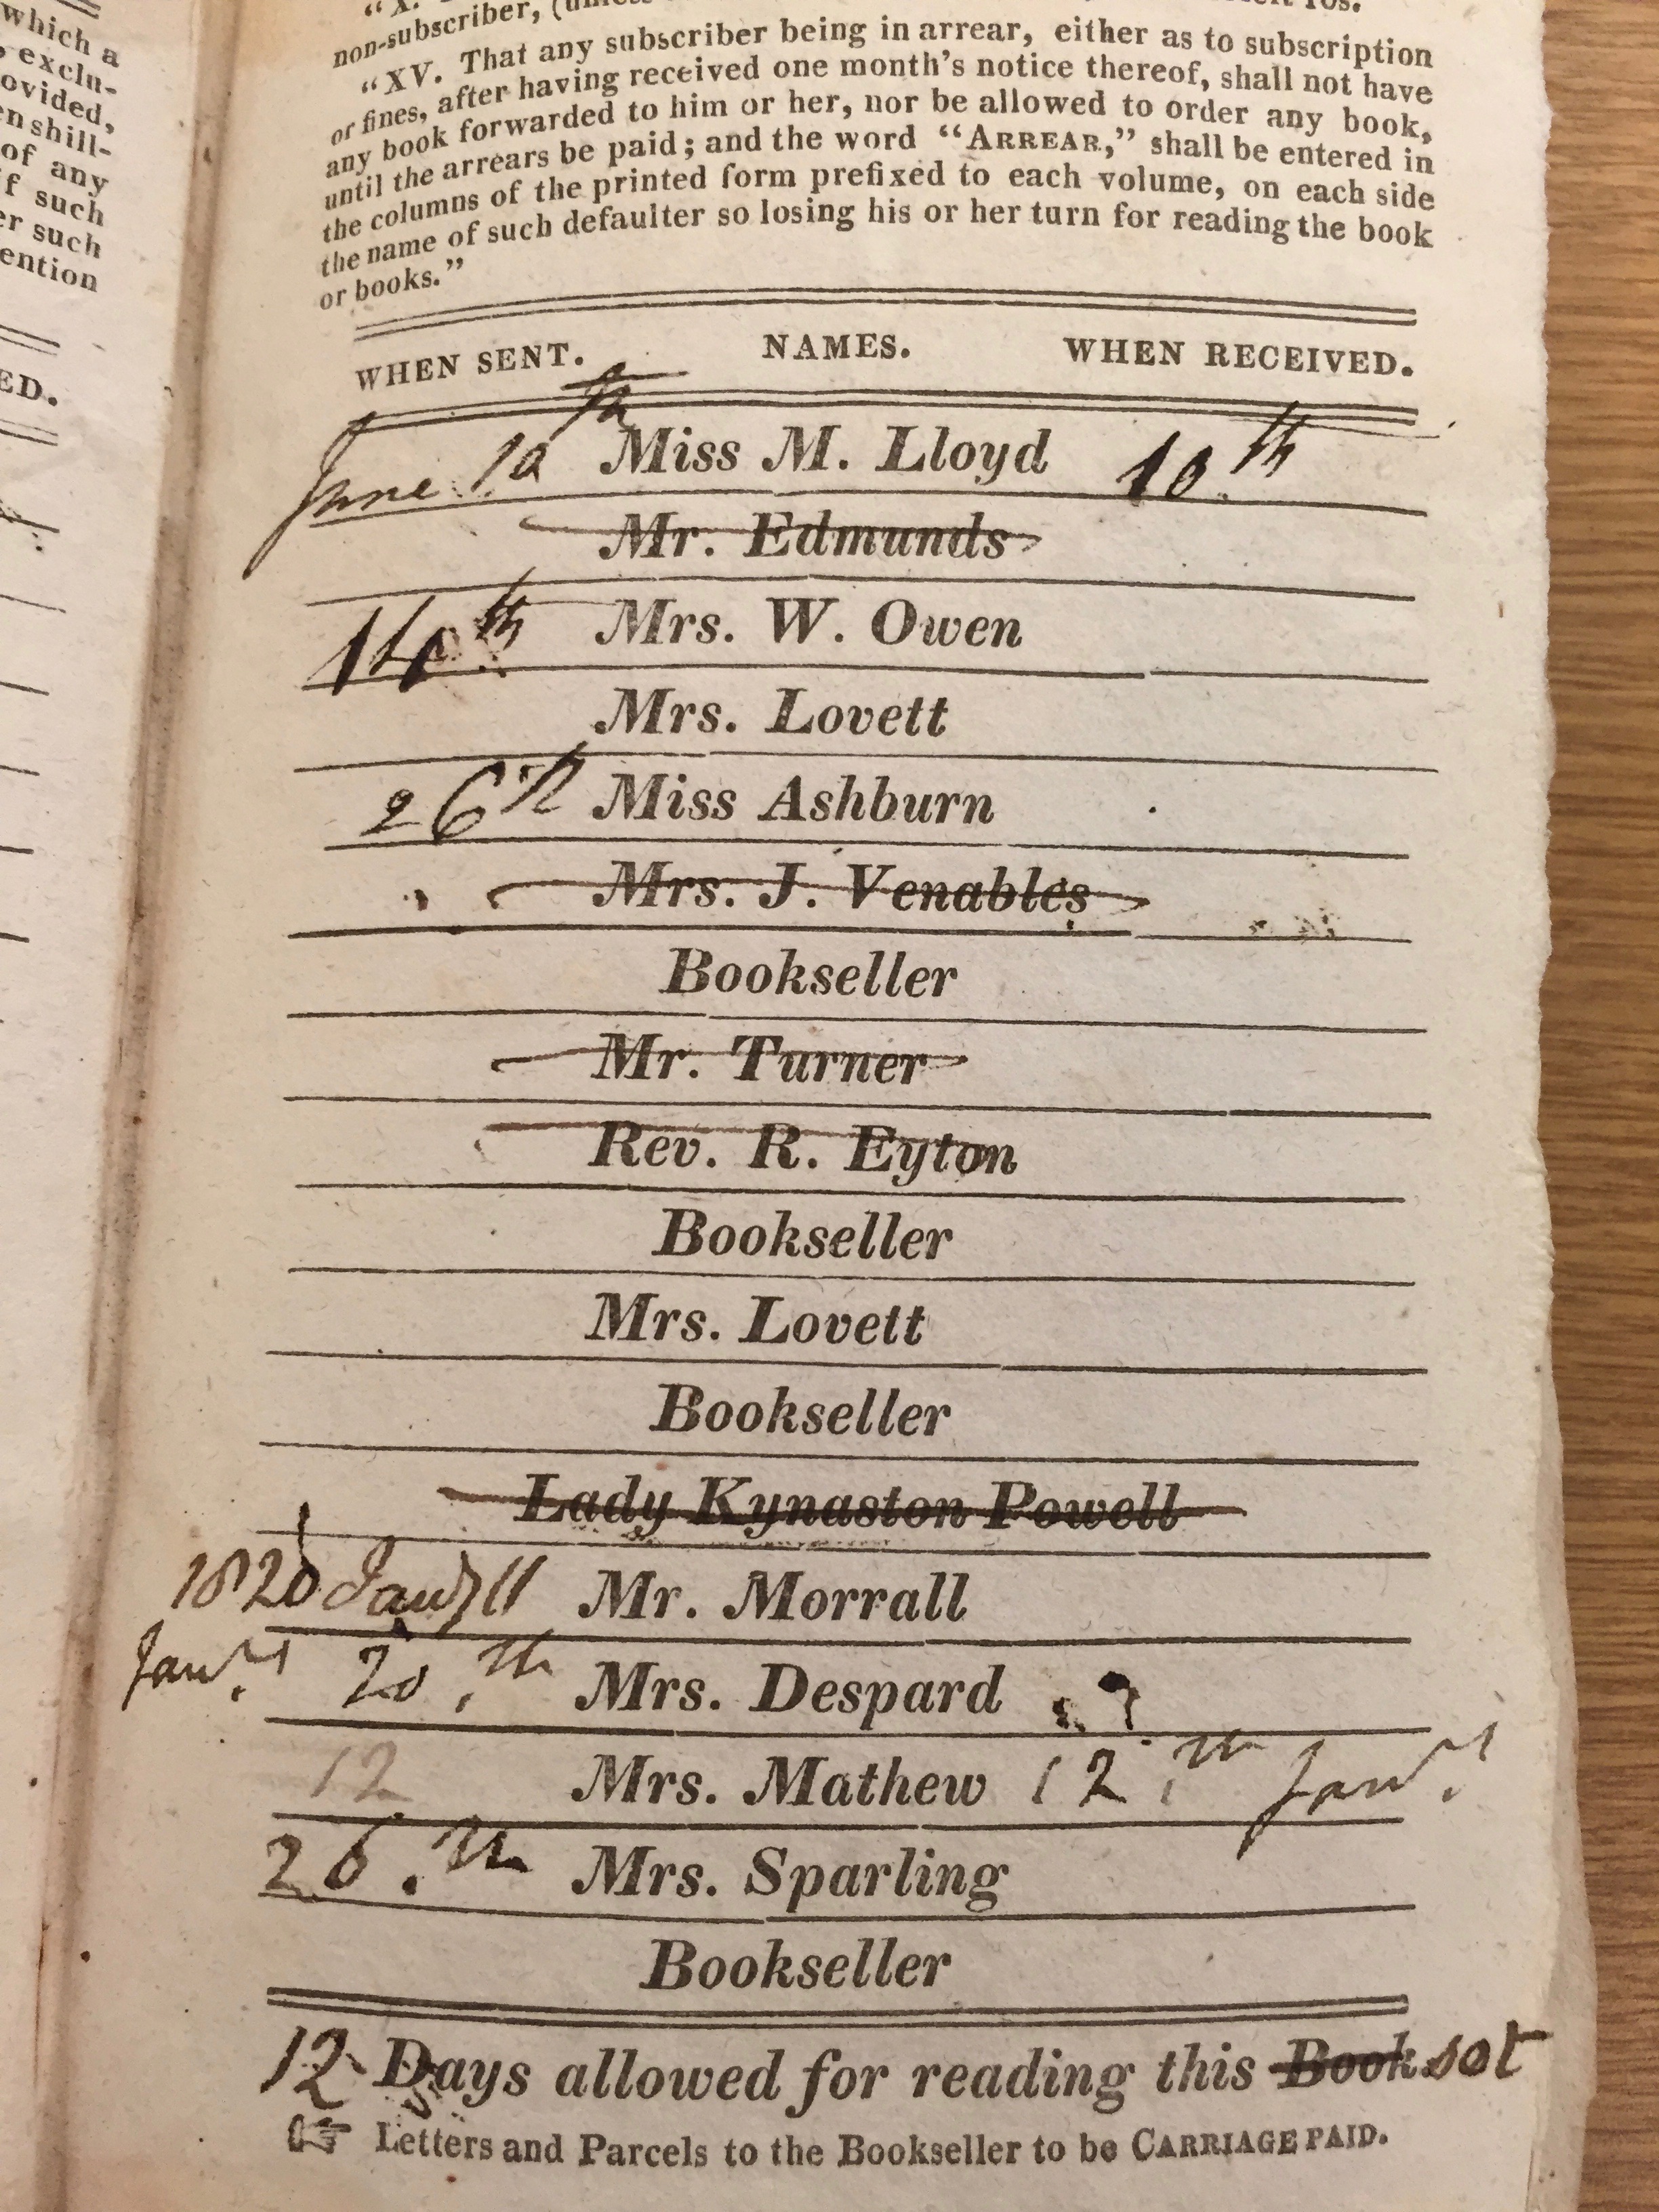 which a
exclu-
ovided,
en shill-
of any
f such
er such
ention
ED.
"X.
non-subscriber,
"XV. That any subscriber being in arrear, either as to subscription
or fines, after having received one month's notice thereof, shall not have
any book forwarded to him or her, nor be allowed to order any book,
until the arrears be paid; and the word "ARREAR," shall be entered in
the columns of the printed form prefixed to each volume, on each side
the name of such defaulter so losing his or her turn for reading the book
or books."
WHEN SENT. NAMES. WHEN RECEIVED.
June 10th Miss M. Lloyd 10th
Mr. Edmunds
Mrs. W. Owen
Mrs. Lovett
26th Miss Ashburn
Mrs. J. Venables
Bookseller
Mr. Turner
Rev. R. Eyton
Bookseller
Mrs. Lovett
Bookseller
Lady Kynaston Powell
1820 Jany 11 Mr. Morrall
Jany 20th Mrs. Despard
12 Mrs. Mathew 12th Jany
26th Mrs. Sparling
Bookseller
12 Days allowed for reading this Book set
☞ Letters and Parcels to the Bookseller to be CARRIAGE PAID.